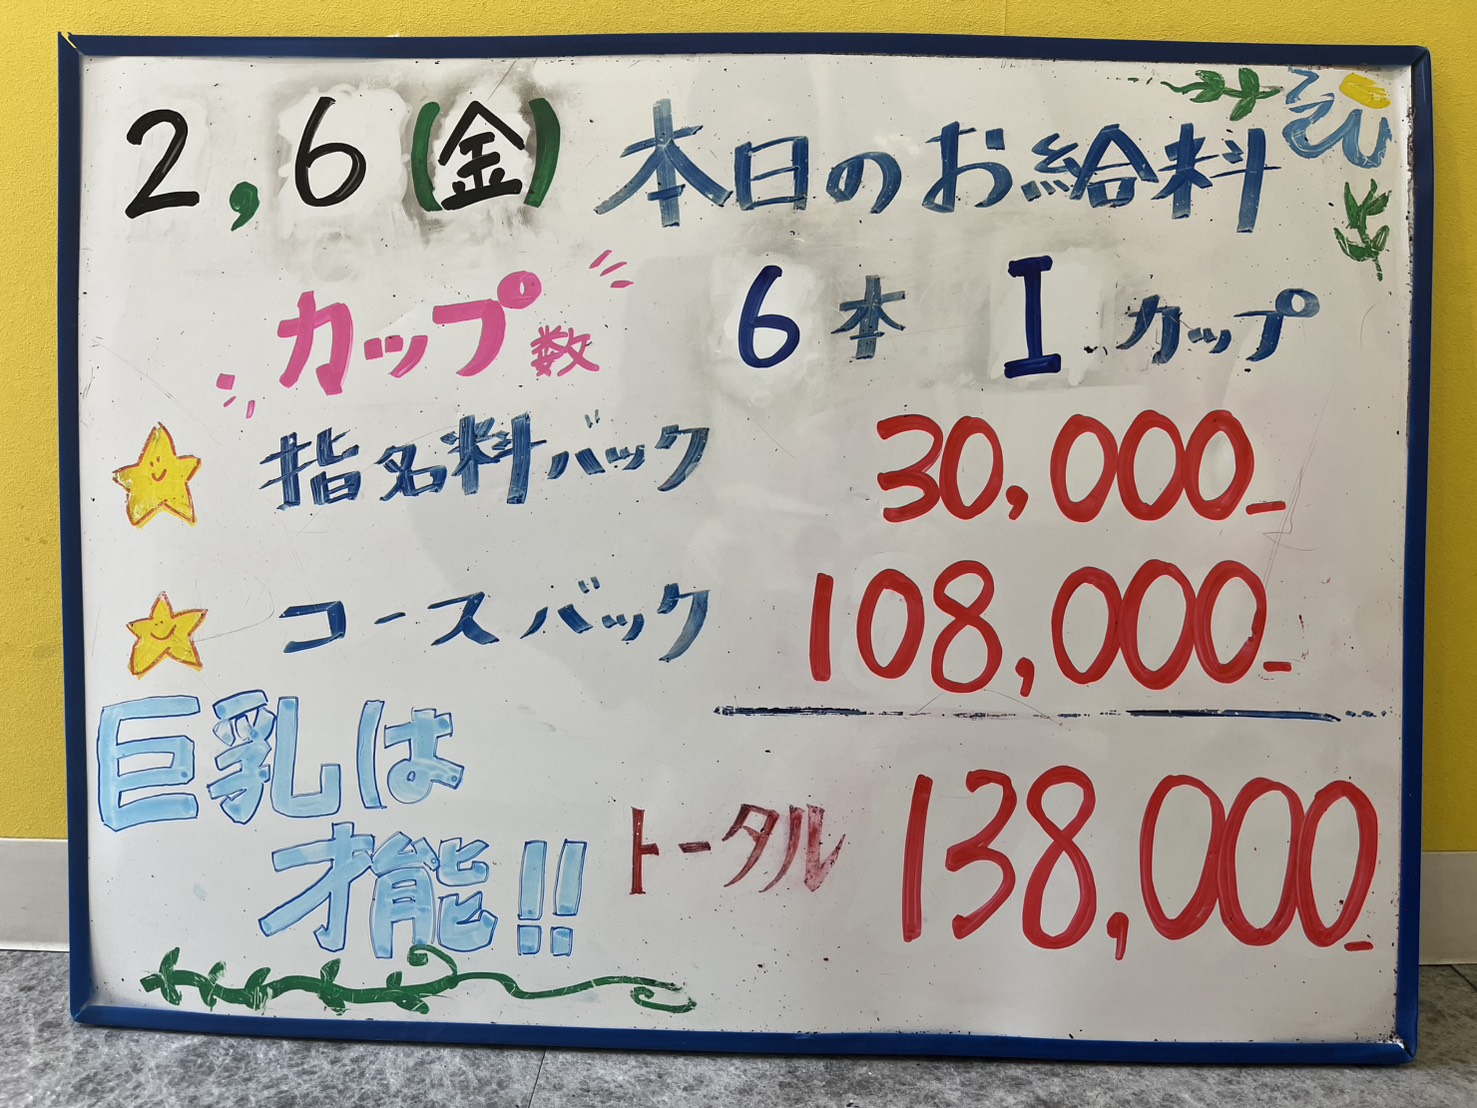 2,6(金) 本日のお給料
カップ数 6本 Iカップ
指名料バック 30,000-
コースバック 108,000-
巨乳は
才能!!
トータル 138,000-